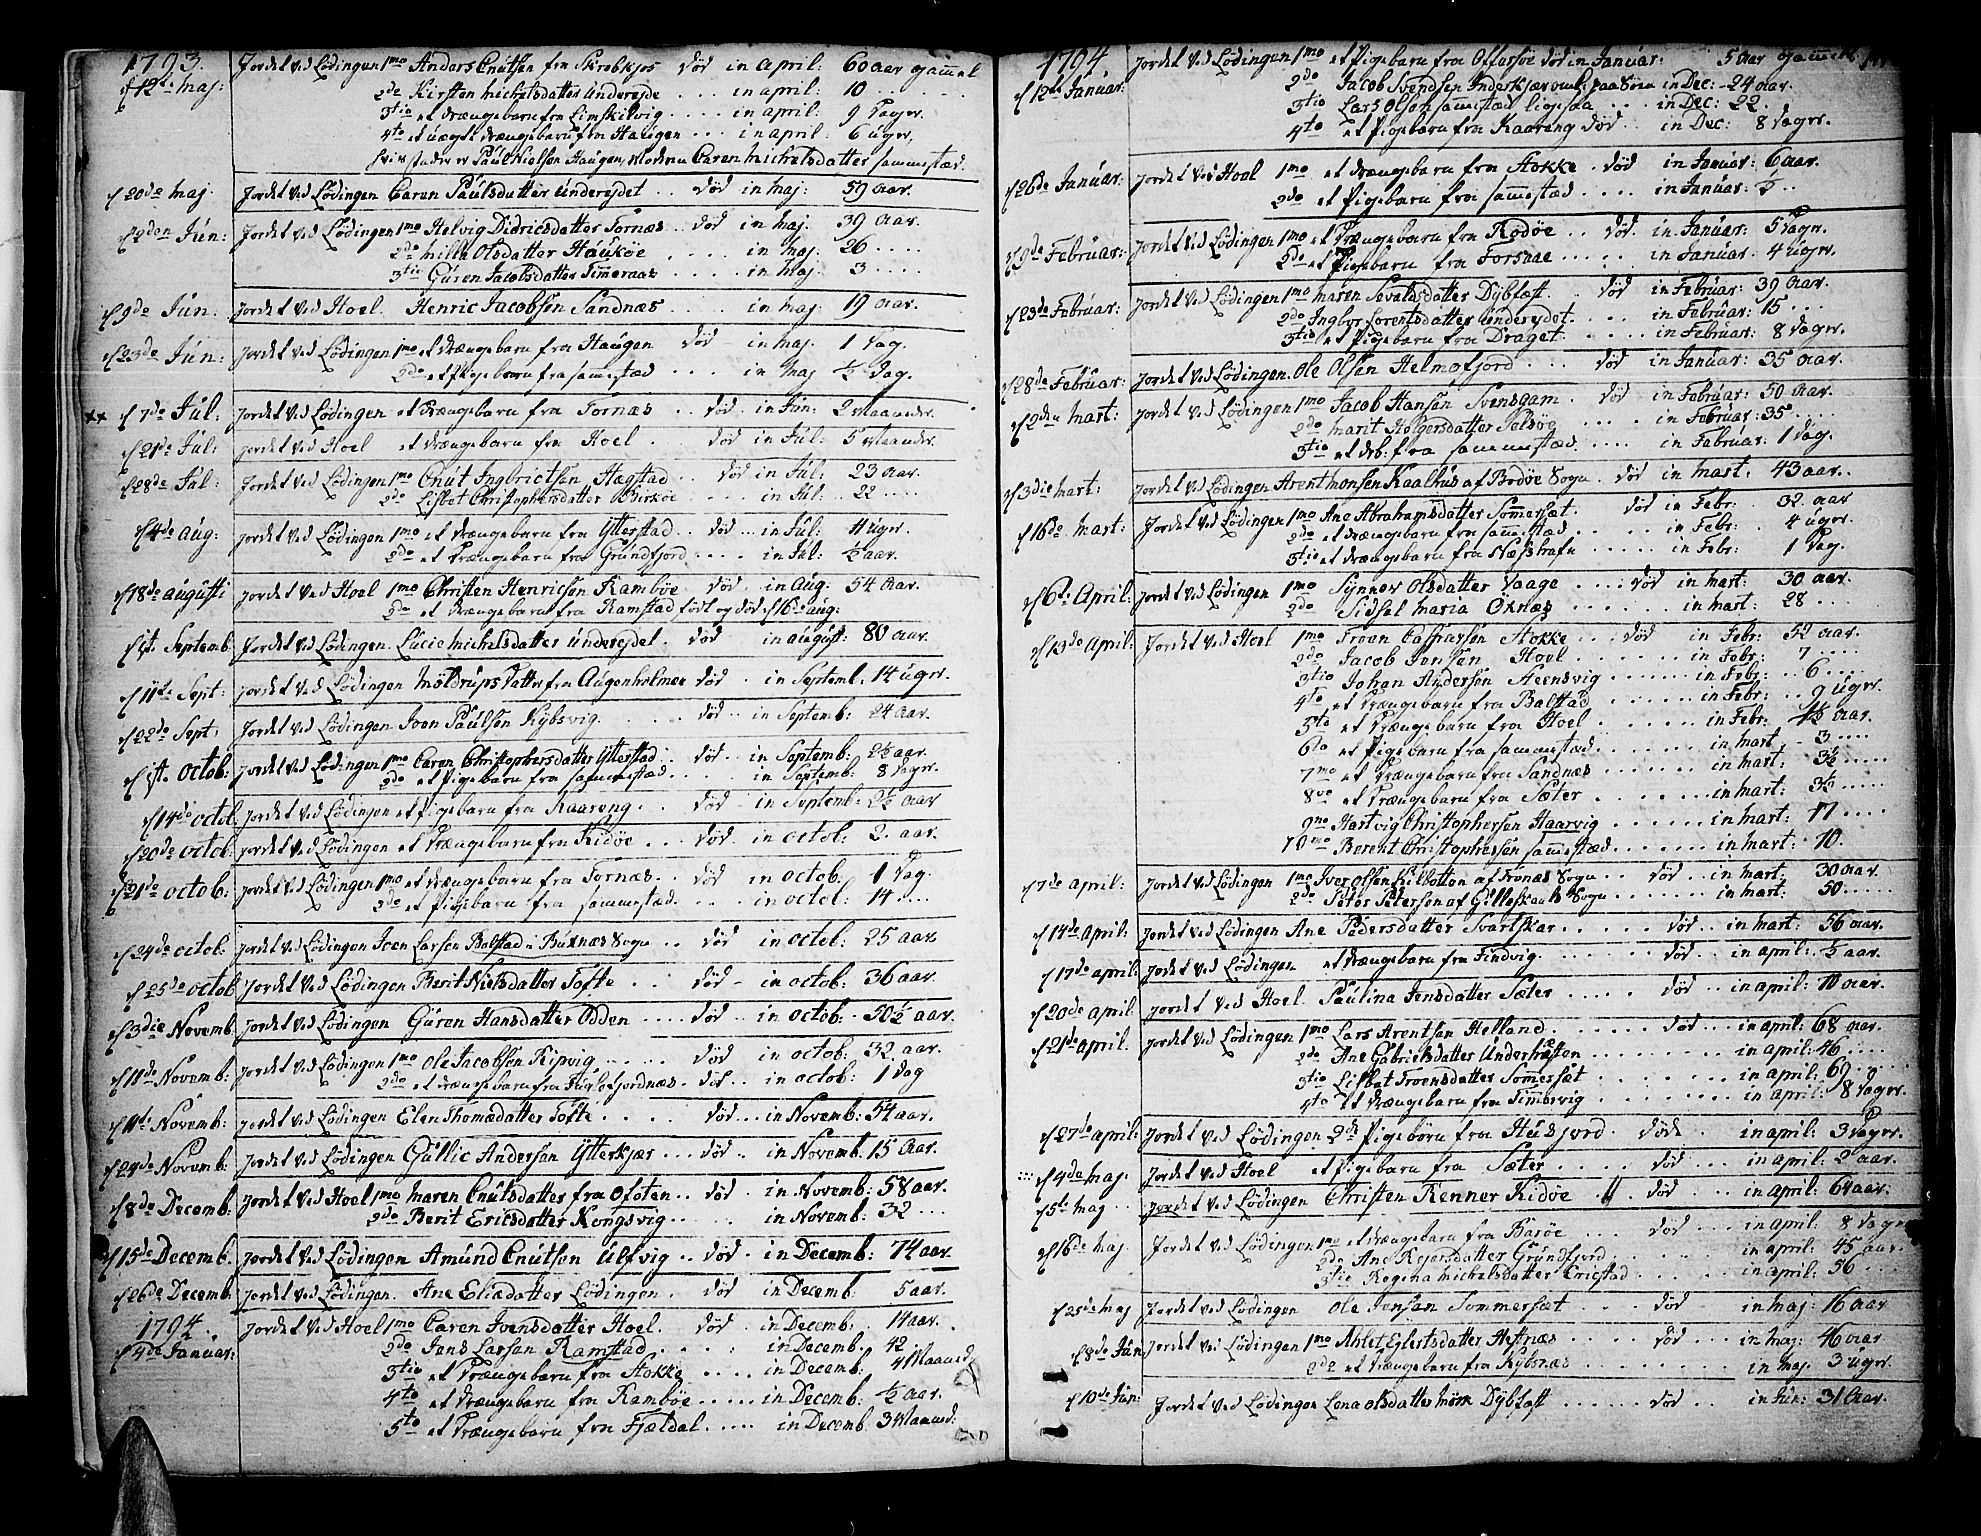 1793.
d 12te Maj: Jordet ved Lødingen 1mo Anders Cnutsen fra Skrobkjos død in April: 60 aar gammel
2do Kirsten Michelsdatter Undereyde ... in april: 10 ....
3tio et drængebarn fra Limskilvig .... in april: 9 Dager.
4to et uægte drængebarn fra Haugen ... in april: 6 uger,
hvis fader er Paul Nielsen Haugen, Moderen Caren Michelsdatter sammested.
d 20de Maj Jordet ved Lødingen Caren Paulsdatter Undereydet .. død in Maj: 59 aar.
d 2den Jun: Jordet ved Lødingen 1mo Helvig Didricsdatter Tornæs .. død in Maj: 39 aar.
2do Milla Olsdatter Haukøe .... in Maj: 26 ....
3tio Guren Jacobsdatter Timeraas .... in Maj: 3 ....
d 9de Jun: Jordet ved Hoel. Henric Jacobsen Sandnæs .... in Maj: 19 aar.
d 23de Jun: Jordet ved Lødingen 1mo et Drængebarn fra Haugen død - in Maj: 1 Dag.
2do et Pigebarn fra sammestæd ... in Maj ½ Dag.
xx d 7de Jul: Jordet ved Lødingen et Drængebarn fra Tornæs .. død .. in Jun: 2 Maander.
d 21de Jul: Jordet ved Hoel et Drængebarn fra Hoel . død in Jul: 5 Maander.
d 28de Jul: Jordet ved Lødingen 1mo Cnut Ingbrictsen Hagstad .. død in Jul: 23 aar.
2do Lisbet Christophersdatter Birkøe ... in Jul: 22 ....
d 4de aug: Jordet ved Lødingen 1mo et Drængebarn fra Ytterstad .. død ... in Jul: 11 uger.
2do et Drængebarn fra Grundfjord .... in Jul: ½ aar.
d 18de augusti Jordet ved Hoel 1mo Christen Henricsen Ramböe død .. in Aug: 54 aar.
2do et Drængebarn fra Ramstad født og død d 16de Aug:
d 1ste Septemb Jordet ved Lødingen. Lucie Michelsdatter Undereydet. død - in august: 80 aar.
d 11te Sept: Jordet ved Lødingen Möldrups Datter fra Augenholmen død . in Septemb. 14 uger.
d 22de Sept: Jordet ved Lødingen Joen Paulsen Kybsvig .... død .. in Septemb: 24 aar.
d 1ste Octob: Jordet ved Lødingen 1mo Caren Christophersdatter Ytterstad . død .. in Septemb: 2½ aar.
2do et Pigebarn fra sammestæd ... in Septemb: 8 Dager.
d 14de octob Jordet ved Lødingen et Pigebarn fra Kaareng .. død - in Septemb: 2½ aar
d 20de Octob. Jordet ved Lødingen et Drængebarn fra Ridöe ... død .. in Octob: 2. aar.
d 21de octob: Jordet ved Lødingen 1mo et Drængebarn fra Tornæs .. død in octob: 1 Dag
2do et Pigebarn fra sammestæd. ... in octob: 14 ....
d 24de octob: Jordet ved Lødingen Joen Larsen Balstad i Buxnæs Sogn .. død in octob: 25 aar.
d 25de octob Jordet ved Lødingen Berit Nielsdatter Tofte .. død - in octob: 36 aar.
d 3die Novemb: Jordet ved Lødingen Guren Hansdatter Odden .... død .. in octob: 50½ aar.
d 11te Novemb: Jordet ved Lødingen 1mo Ole Jacobsen Ripvig .... død in octob: 32. aar.
2do et Drængebarn fra Fuglefjordnæs . død .. in octob: 1 Dag
d 11te Novemb: Jordet ved Lødingen Elen Thomædatter Tofte ... død ... in Novemb: 54 aar.
d 24de Novemb: Jordet ved Lødingen Gullic Andersen Ytterkjær ... død .. in Novemb. 15 aar.
d 8de Decemb: Jordet ved Hoel 1mo Maren Cnutsdatter fra Ofoten .. død . in Novemb: 58 aar.
2do Berit Ericsdatter Kongsvig .... in Novemb: 32 ...
d 15de Decemb: Jordet ved Lødingen Amund Cnutsen Ulfvig .. død .. in Decemb: 74 aar.
d 26de Decemb. Jordet ved Lødingen. Ane Eliædatter Lødingen . død in Decemb. 5 aar.
1794.
d 4de Januar: Jordet ved Hoel 1mo Caren Ivensdatter Hoel. død .. in Decemb: 14 aar.
2do Jens Larsen Ramstad .... in Decemb. 42 .
3tio et Drængebarn fra Stokke .... in Decemb: 4 Maaned
4to et Drængebarn fra Ramböe .... in Decemb. ½ aar.
5to et Drængebarn fra Fjældal ..... in Decemb. 3 Maaned:
1794
d 12te Januar: Jordet ved Lødingen 1mo et Pigebarn fra Offersøe død in Januar: 5 aar gammel
2do Jacob Svendsen Inderkjær omk: paa Søen in Dec: 24 aar.
3tio Lars Olsen samestæd ligesaa .. in Dec: 22 .
4to et Pigebarn fra Kaareng død .. in Dec: 8 Dager.
d 26de Januar: Jordet ved Hoel 1mo et Drængebarn fra Stokke . død in Januar: 6 aar.
2do et Pigebarn fra samestæd .... in Januar: ½ ..
d 9de Februar: Jordet ved Lødingen 1mo et Drængebarn fra Rödøe .. død . in Januar: 5 Dager.
2do et Pigebarn fra Forsaae ..... in Januar. 4 uger.
d 23de Februar: Jordet ved Lødingen 1mo Maren Sevaldsdatter Dybtæft . død in Februar: 39 aar.
2do Ingbor Lorentsdatter Undereydet. . in Februar: 15 ...
3tio et Pigebarn fra Draget ..... in Februar: 8 Dager.
d 28de Februar: Jordet ved Lødingen. Ole Olsen Helmofjord ... død in Januar: 35 aar.
d 2den Mart: Jordet ved Lødingen 1mo Jacob Hansen Svensgam . død in Februar: 50 aar.
2do Marit Holgersdatter Pelsøe .... in Februar: 35 ....
3tio et drb: fra sammestæd. .... in Februar: 1 Dag.
d 3die Mart: Jordet ved Lødingen Arent Monsen Kaalhus af Bodøe Sogn. død in Mart. 43 aar.
d 16de Mart: Jordet ved Lødingen 1mo Ane Abrahamsdatter Somersæt. død in Febr: 32 aar
2do et Drængebarn fra samestæd .... in Febr. 4 uger.
3tio et Drængebarn fra Næshafn .... in Febr: 1 Dag.
d 6te April: Jordet ved Lødingen 1mo Synnev Olsdatter Vaage .... død in Mart: 30 aar.
2do Sidsel Maria Öxnæs ..... in Mart: 28 ....
d 13de April: Jordet ved Hoel 1mo Troen Caspersen Stokke .. død in Febr: 52 aar.
2do Jacob Jensen Hoel ...... in Febr: 7 ....
3tio Johan Andersen Steensvig ...... in Febr: .. 6 ....
4to et Drængebarn fra Balstad ..... in Febr. .. 9 uger.
5to et Drængebarn fra Hoel ...... in Febr. 1½ aar.
6to et Pigebarn fra sammestæd ...... in Mart, - 3 ....
7mo et Drængebarn fra Sandnæs ...... in Mart: 3½ ....
8vo et Drængebarn fra Sæter ...... in Mart: 3½ ....
9no Hartvig Christophersen Haarvig ..... in Mart: 17 ....
10mo Berent Christophersen samestæd ...... in Mart: 10.
d 7de april: Jordet ved Lødingen 1mo Iver Olsen Kilbotten af Tronæs Sogn .. død .. in Mart: 30 aar.
2do Peter Petersen af Gilleskaals Sogn .... in Mart. 50 ....
d 14de april: Jordet ved Lødingen Ane Pedersdatter Svartskar .... død .. in Mart: 56 aar.
d 17de april: Jordet ved Lødingen et Drængebarn fra Findvig ..... død .. in april: ½ aar.
d 20de april Jordet ved Hoel Paulina Jensdatter Sæter ..... død ... in april: 10 aar.
d 21de april: Jordet ved Lødingen 1mo Lars Arentsen Helland ..... død ... in april: 68 aar.
2do Ane Gabrielsdatter Underhæften ..... in april: 46 ....
3tio Lisbet Troensdatter Somersæt ...... in april: 69 ....
4to et Drængebarn fra Timervig ....... in april: 8 Dager.
d 27de april: Jordet ved Lødingen 2de Pigebørn fra Husjord . døde .. in april: 3 Dager.
::: d 4de Maj: Jordet ved Hoel et Pigebarn fra Sæter .... død ... in april: 2 aar.
d 5te Maj Jordet ved Lødingen Christen Renner Ridøe . død ... in april: 64 aar.
d 18de Maj. Jordet ved Lødingen 1mo et Drængebarn fra Barøe . død . in april 8 Dage
2do Ane Rejersdatter Grundfjord ..... in april: 45 aar.
3tio Regina Michelsdatter Ericstad ..... in april: 56 ....
d 25de Maj Jordet ved Lødingen Ole Jensen Sommersæt ... død in Maj: 16 aar
d 8de Jun Jordet ved Lødingen 1mo Ablet Eylertsdatter Hestnæs ..... død ... in Maj: 46 aar
2do et Drængebarn fra Kybsnæs ...... in Maj. 3 uger.
d 10de Jun: Jordet ved Lødingen Lena Olsdatter Mörk Dybtoft ..... død .. in Jun: 31 aar.